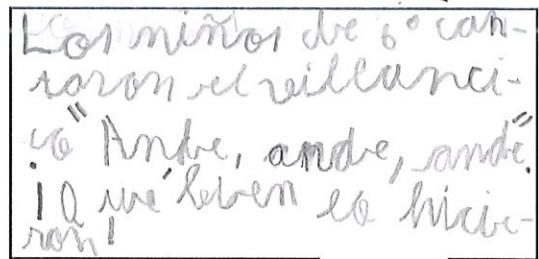 Los niños de 6º can-
taron el villanci-
co "Ande, ande, ande".
¡Qué bien lo hicie-
ron!